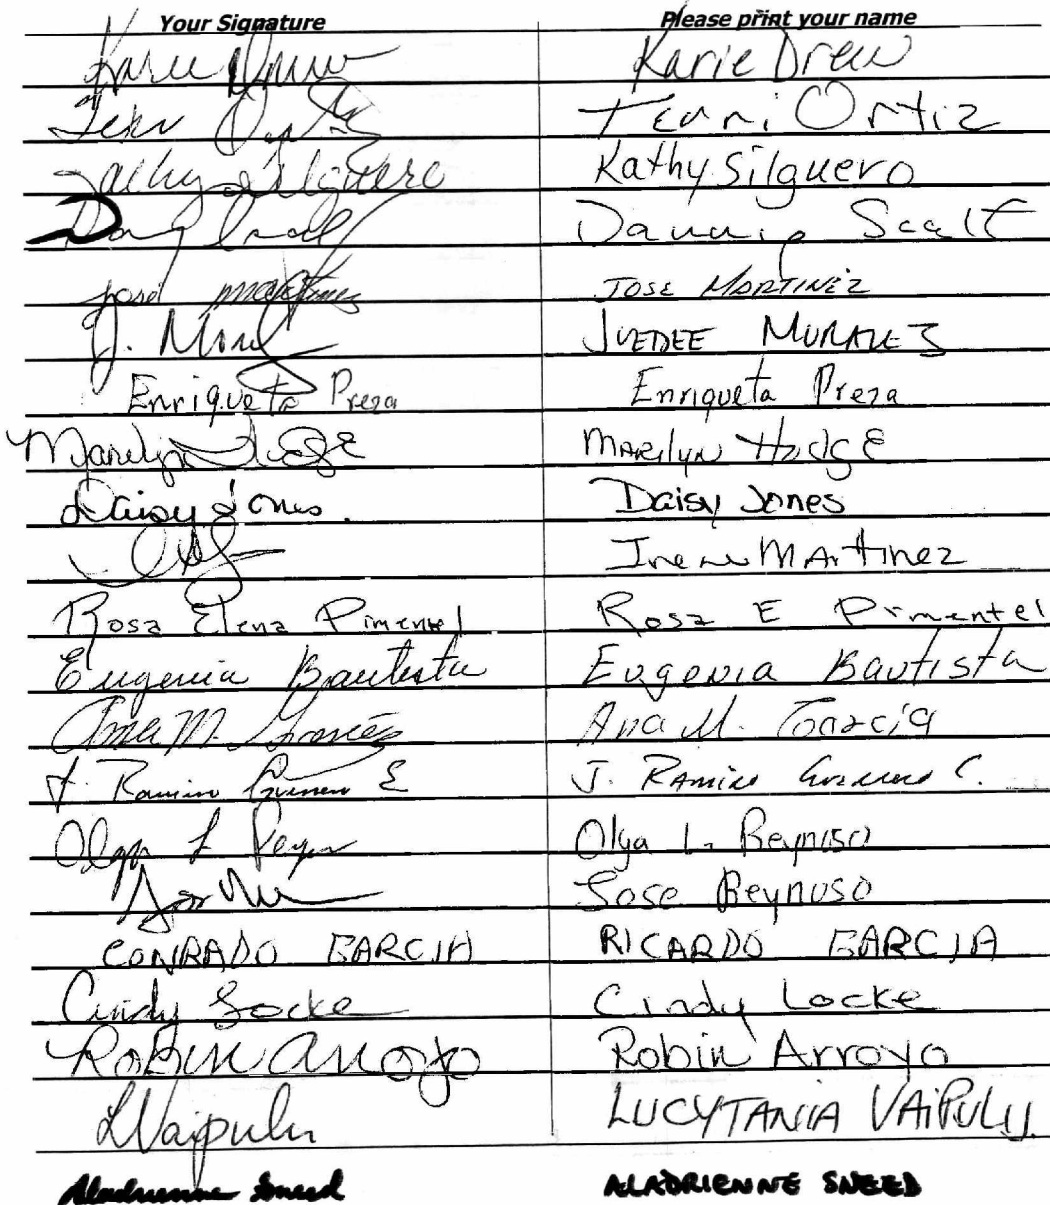 Your Signature Please print your name
Karie Drew Karie Drew
Terri Ortiz Terri Ortiz
Kathy Silguero Kathy Silguero
Danny Scalf
José Martinez JOSE MARTINEZ
J. JUEDEE
Enriqueta Preza Enriqueta Preza
Marilyn Hodge MARilyN HodgE
Daisy Jones. Daisy Jones
Irene MArtinez
Rosa Elena Pimentel Rosa E Pimentel
Eugenia Bautista Eugenia Bautista
Ana M. Garcia Ana M. Garcia
J. Ramiro J. RAMIRO C.
Olga L Olga L. Reynoso
Jose Reynoso
CONRADO GARCIA RICARDO GARCIA
Cindy Locke Cindy Locke
Robin Arroyo Robin Arroyo
LVaipulu LUCYTANIA VAiPULU
Aladrienne Sneed ALADRIENNE SNEED